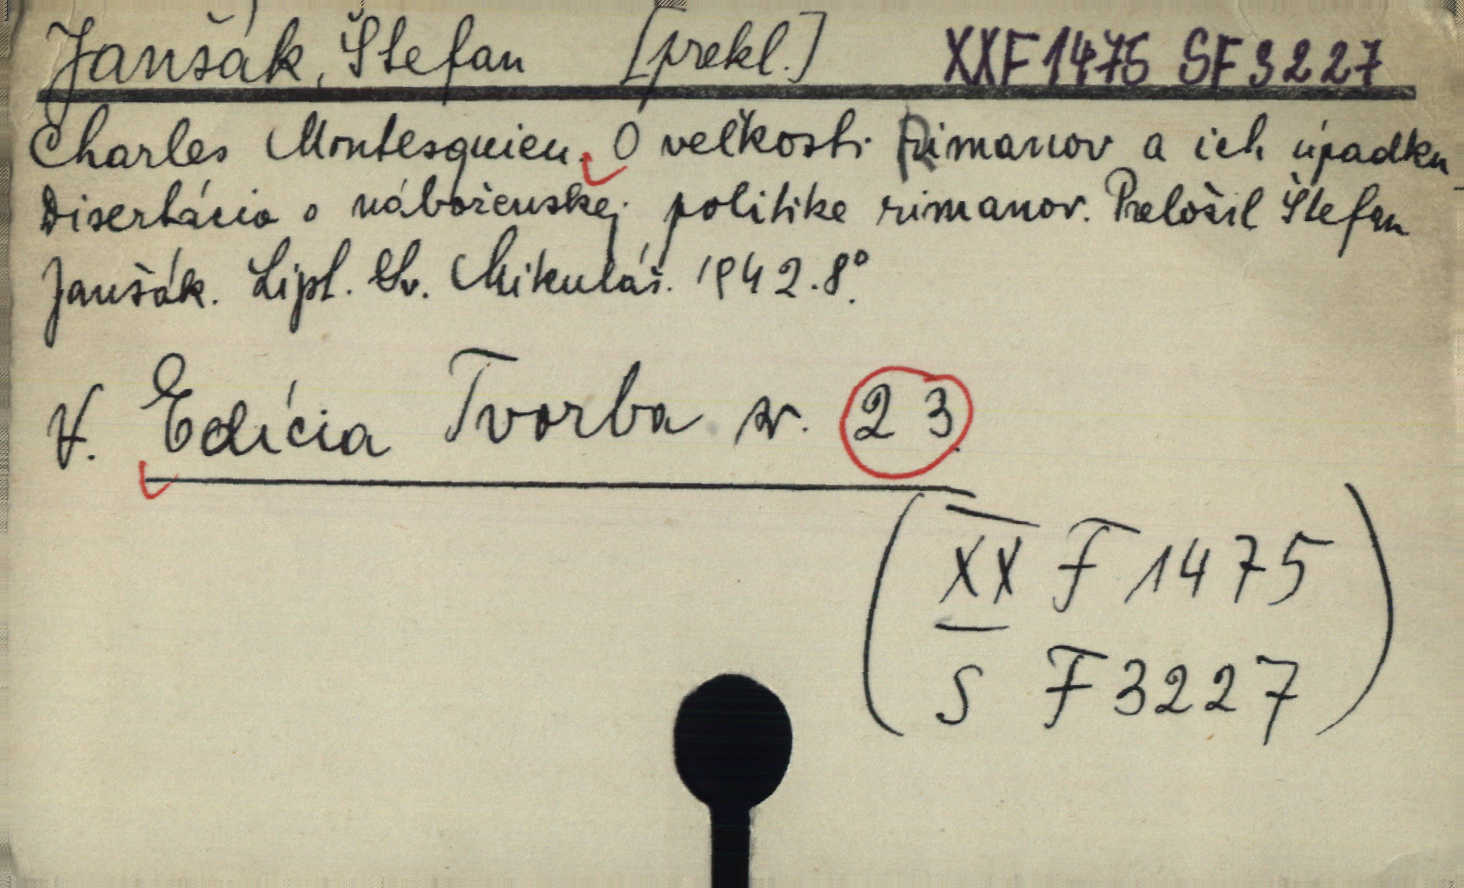 Janšák, Štefan [prekl.] XXF1475 SF3227
Charles Montesquieu. O veľkosti Rimanov a ich úpadku.
Disertácia o náboženskej politike rimanov. Preložil Štefan
Janšák. Lipt. Sv. Mikuláš. 1942. 8°.
V. Edícia Tvorba sv. 23.
(XX F 1475
S F 3227)